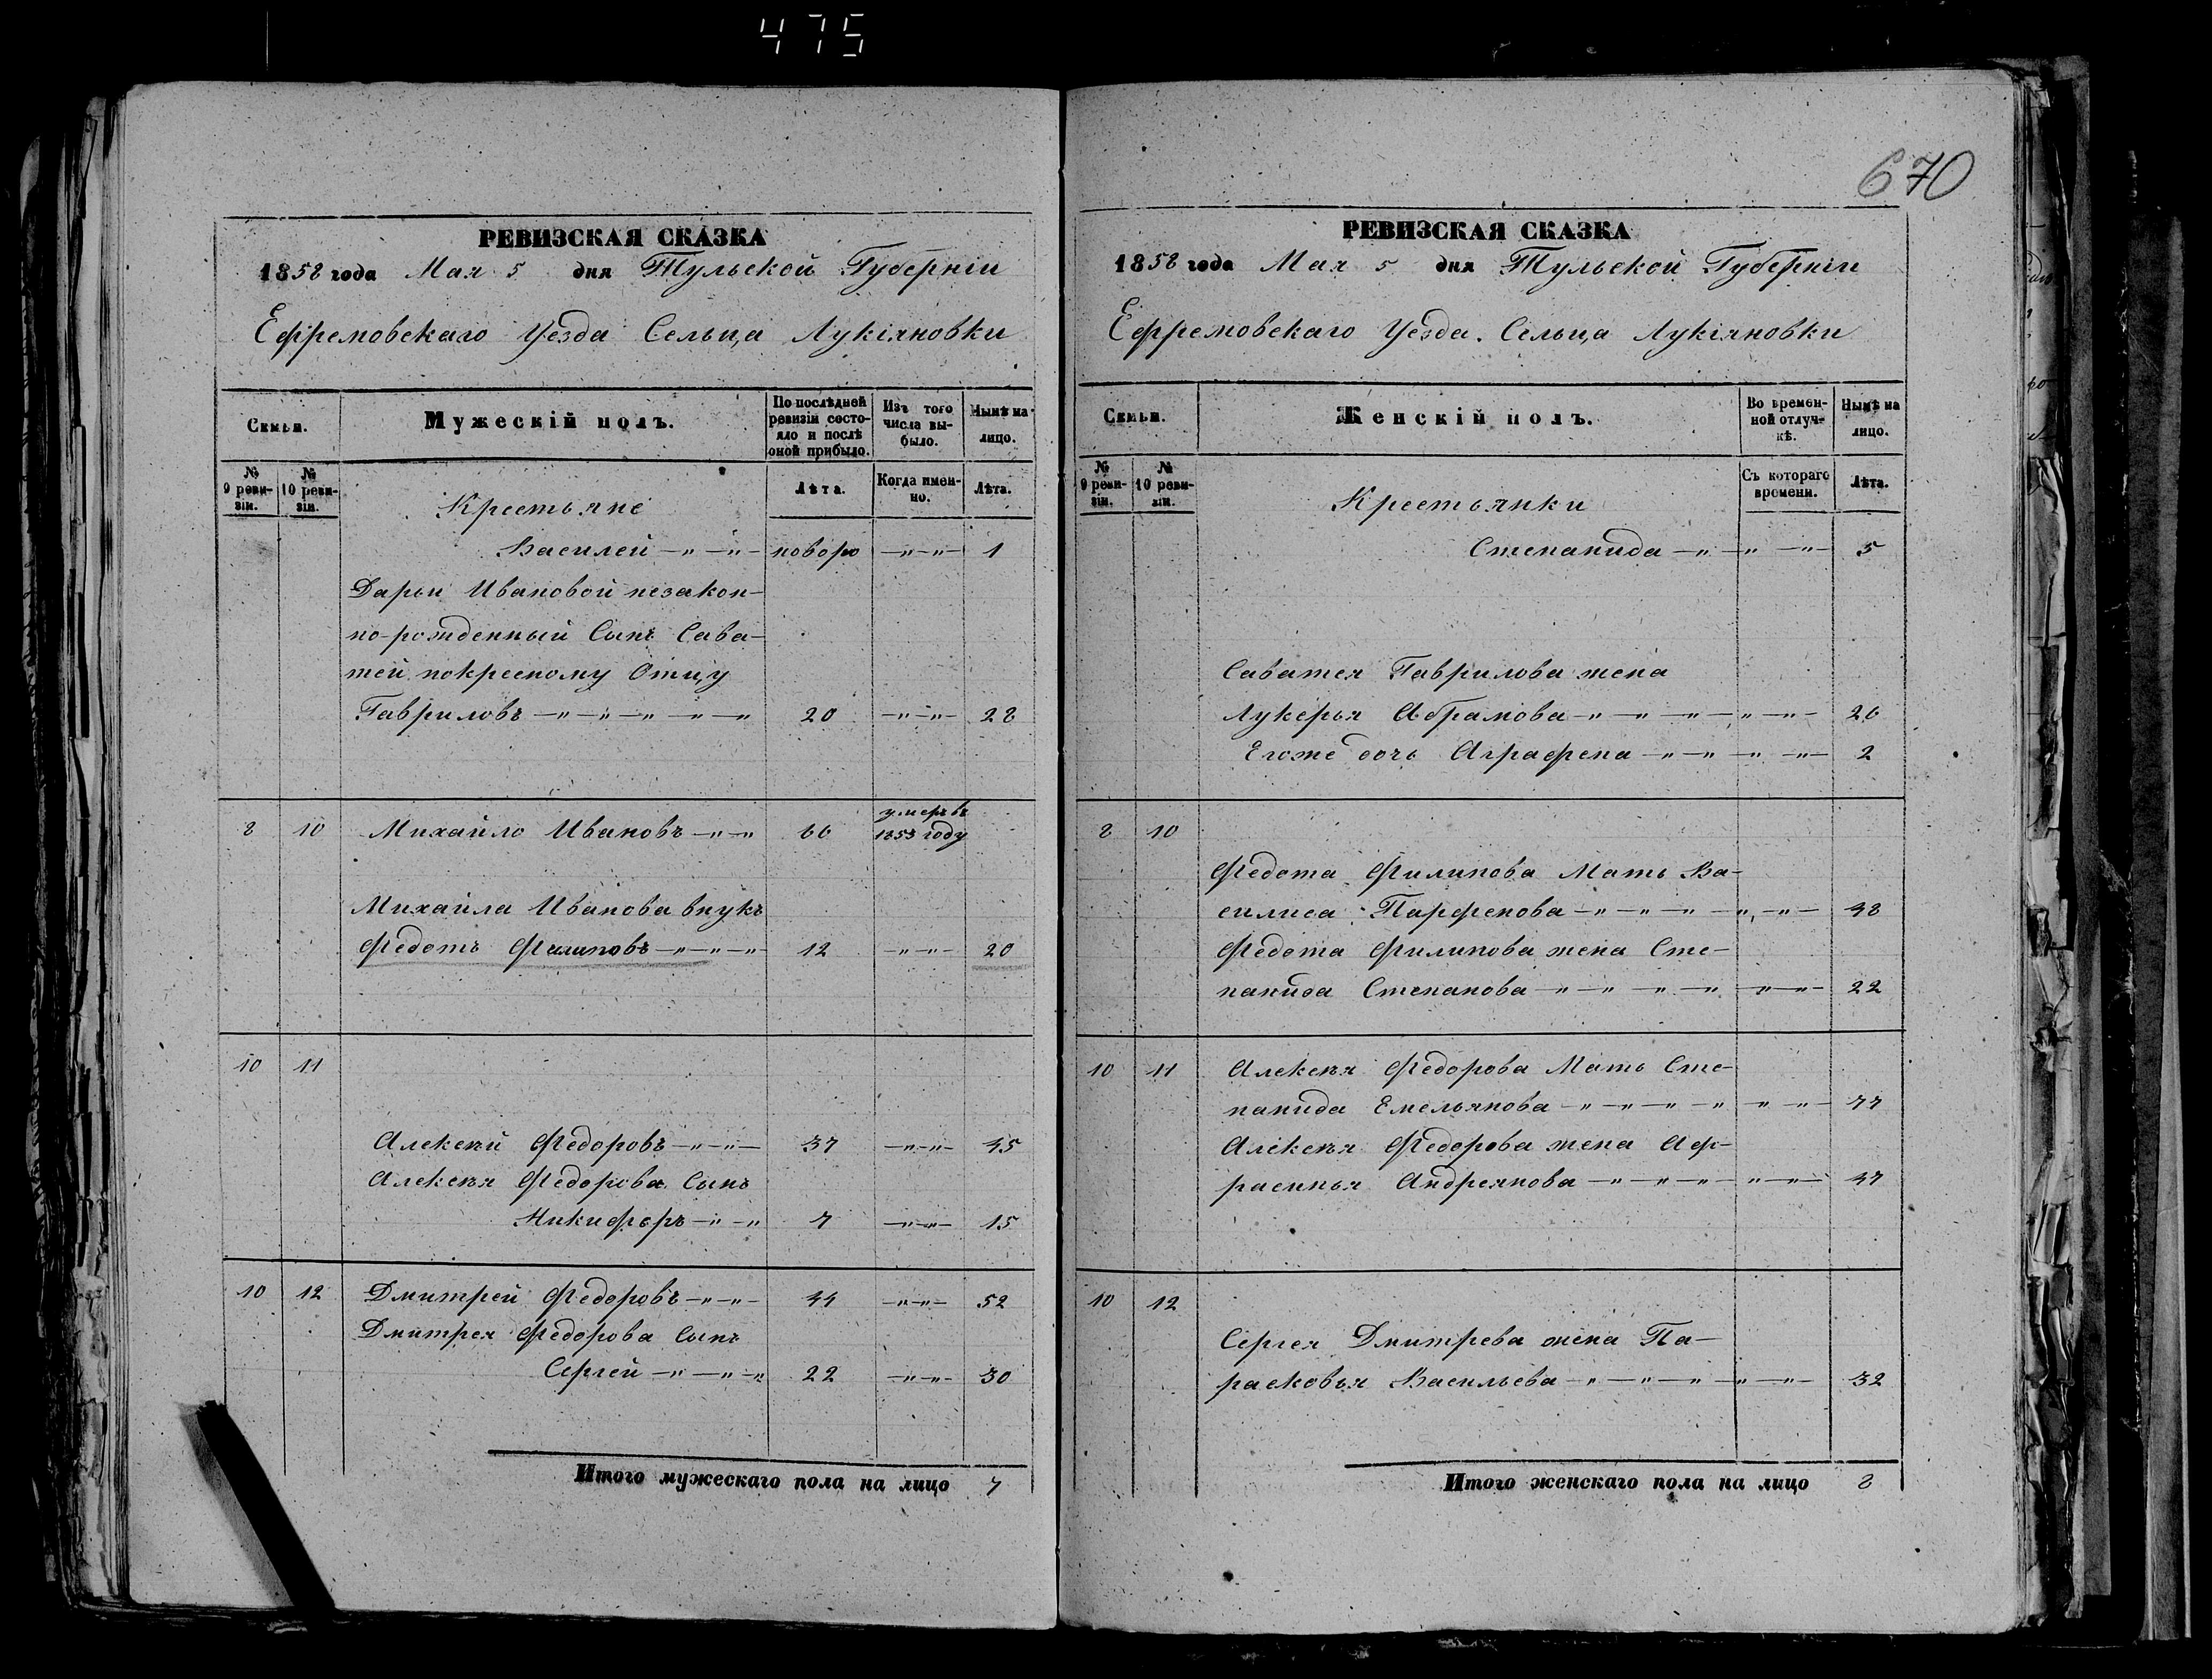 475
670
РЕВИЗСКАЯ СКАЗКА
1858 года Мая 5 дня Тульской Губерніи
Ефремовскаго Уезда Сельца Лукіяновки
Семьи.
Мужескій полъ.
По послѣдней ревизіи состо-
яло и послѣ
оной прибыло.
Изъ того
числа вы-
было.
Нынѣ на
лицо.
№ 9 реви-
зіи.
№ 10 реви-
зіи.
Лѣта.
Когда имен-
но.
Лѣта.
Крестьяне
Василей —„—„— новоро —„—„— 1
Дарьи Ивановой незакон-
но-рожденный Сынъ Сава-
тей покресному Отцу
Гавриловъ —„—„—„—„—„ 20 —„—„— 28
8 10 Михайло Ивановъ —„—„ 66 умеръ въ
1853 году
Михайла Иванова внукъ
Федотъ Филиповъ —„—„—„ 12 —„—„— 20
10 11
Алексѣй Федоровъ —„—„— 37 —„—„— 45
Алексѣя Федорова Сынъ
Никифоръ —„—„ 7 —„—„— 15
10 12 Дмитрей Федоровъ —„—„— 44 —„—„— 52
Дмитрея Федорова Сынъ
Сергей —„—„—„ 22 —„—„— 30
Итого мужескаго пола на лицо 7
РЕВИЗСКАЯ СКАЗКА
1858 года Мая 5 дня Тульской Губерніи
Ефремовскаго Уезда. Сельца Лукіяновки
Семьи.
Женскій полъ.
Во времен-
ной отлуч-
кѣ.
Нынѣ на
лицо.
№ 9 реви-
зіи.
№ 10 реви-
зіи.
Съ котораго
времени.
Лѣта.
Крестьянки
Степанида —„—„—„— 5
Саватея Гаврилова жена
Лукерья Абрамова —„—„—„—„—„— 26
Егоже дочь Аграфена —„—„—„—„— 2
8 10
Федота Филипова Мать Ва-
силиса Парфенова —„—„—„—„—„— 48
Федота Филипова жена Сте-
панида Степанова —„—„—„—„—„—„— 22
10 11 Алексѣя Федорова Мать Сте-
панида Емельянова —„—„—„—„—„—„— 77
Алексѣя Федорова жена Аф-
расинья Андреянова —„—„—„—„—„— 47
10 12
Сергея Дмитрева жена Па-
расковья Васильева —„—„—„—„—„— 32
Итого женскаго пола на лицо 8